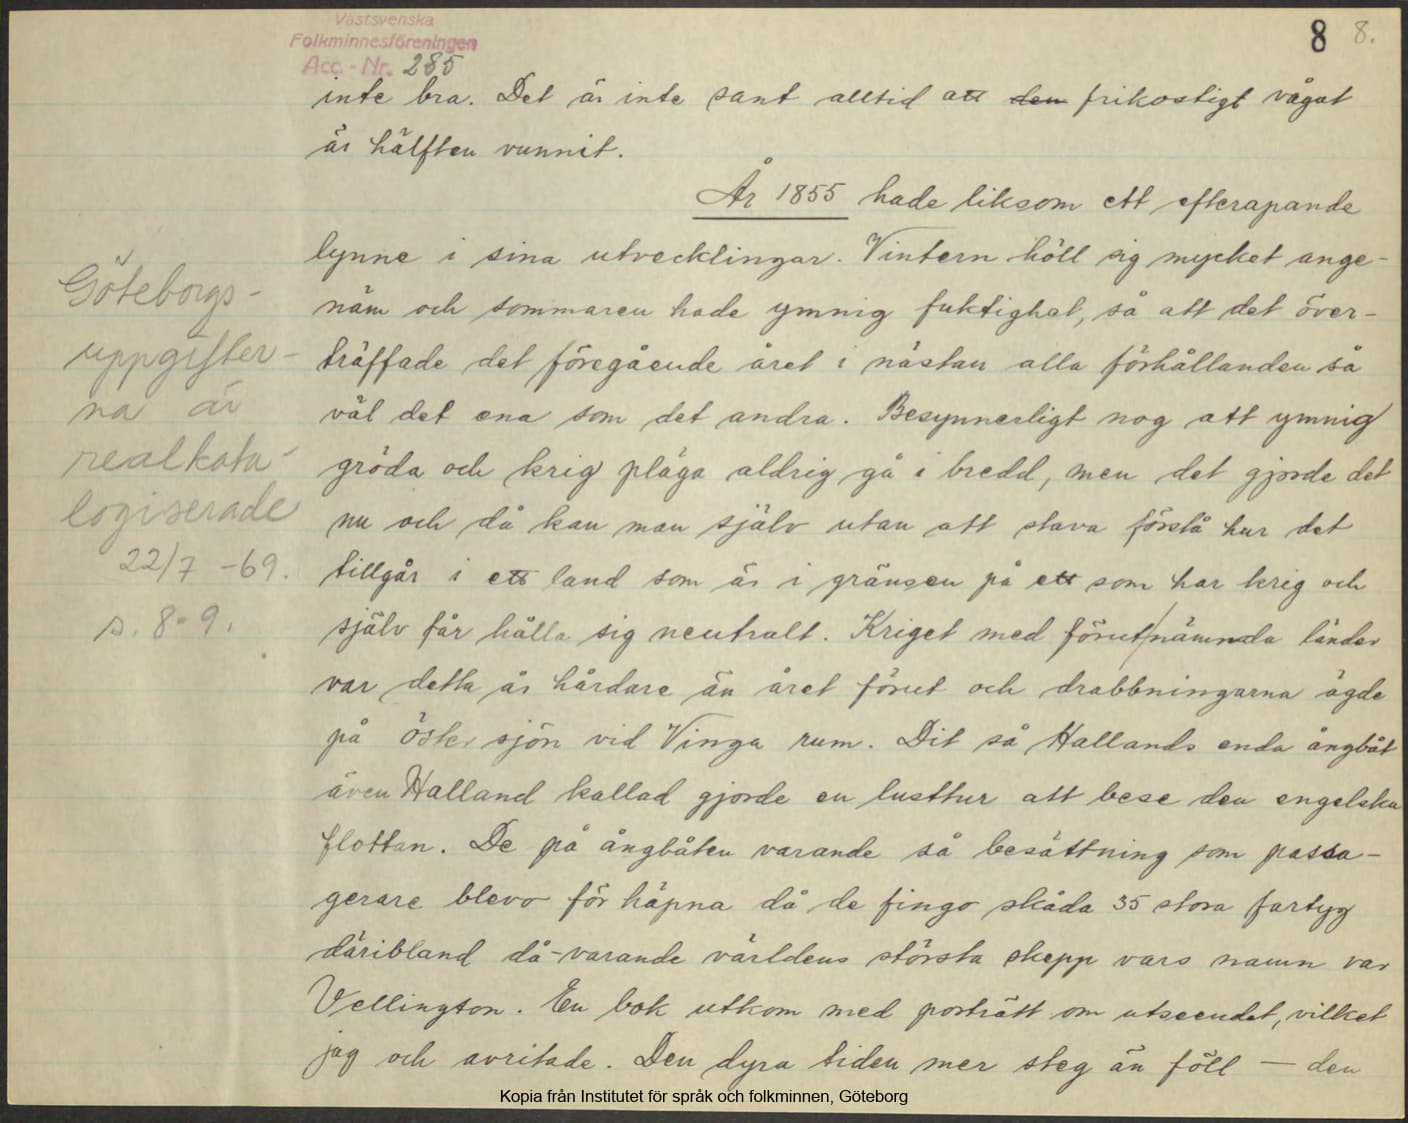 Västsvenska
Folkminnesföreningen
Acc.-Nr. 285
8 8.
inte bra. Det är inte sant alltid att den frikostigt vågat
är hälften vunnit.
År 1855 hade liksom ett efterapande
lynne i sina utvecklingar. Vintern höll sig mycket ange-
näm och sommaren hade ymnig fuktighet, så att det över-
träffade det föregående året i nästan alla förhållanden så
väl det ena som det andra. Besynnerligt nog att ymnig
gröda och krig pläga aldrig gå i bredd, men det gjorde det
nu och då kan man själv utan att stava förstå hur det
tillgår i ett land som är i gränsen på ett som har krig och
själv får hålla sig neutralt. Kriget med förut/nämnda länder
var detta år hårdare än året förut och drabbningarna ägde
på Östersjön vid Vinga rum. Dit så Hallands enda ångbåt
även Halland kallad gjorde en lusttur att bese den engelska
flottan. De på ångbåten varande så besättning som passa-
gerare blevo för häpna då de fingo skåda 35 stora fartyg
däribland då-varande världens största skepp vars namn var
Vellington. En bok utkom med porträtt om utseendet, vilket
jag och avritade. Den dyra tiden mer steg än föll — den
Göteborgs-
uppgifter-
na är
realkata-
logiserade
22/7 -69.
s. 8-9.
Kopia från Institutet för språk och folkminnen, Göteborg